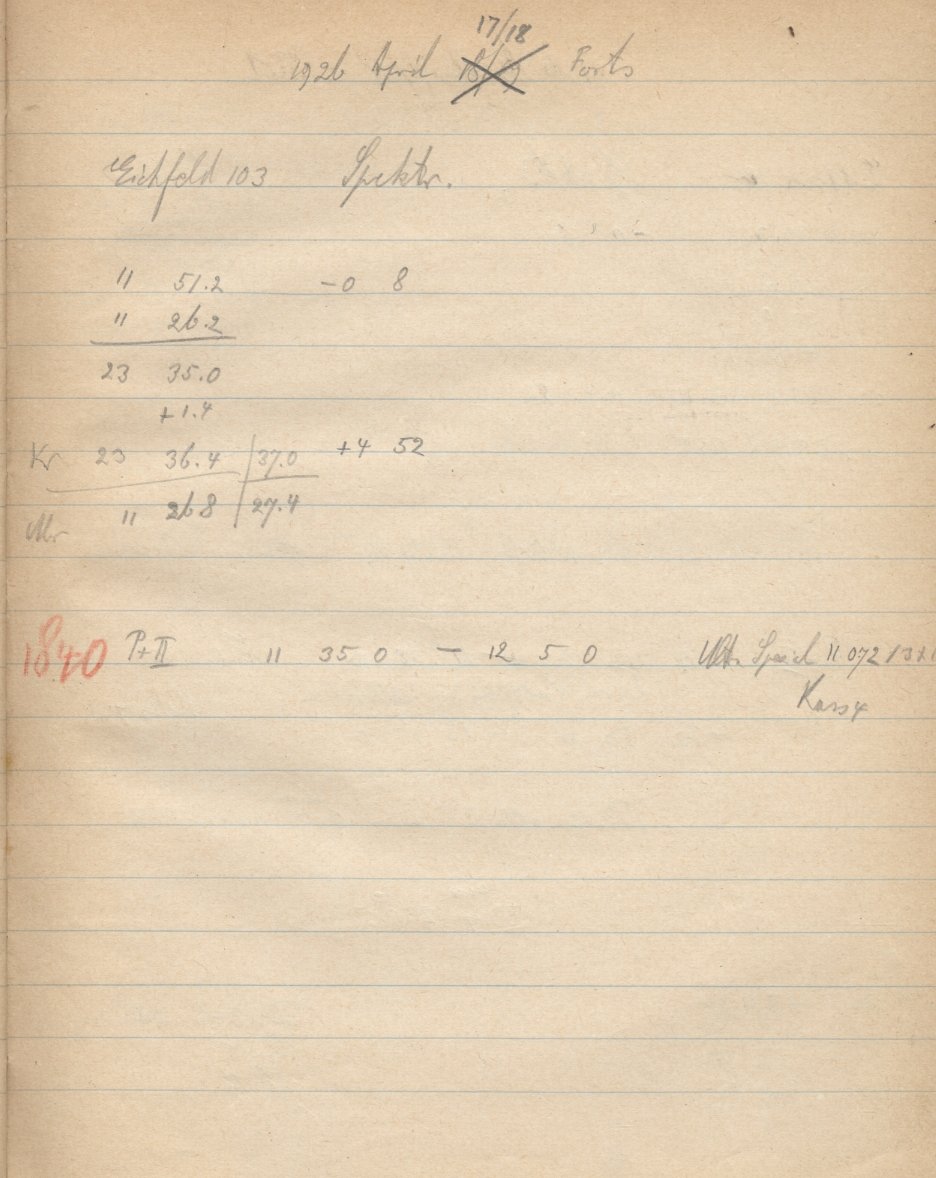 17/18
1926 April 18/19 Forts
Eichfeld 103 Spektr.
11 51.2 -0 8
11 26.2
23 35.0
+1.4
Kr 23 36.4 37.0 +4 52
11 26 8 27.4
1840 P+II 11 35 0 — 12 5 0 11 072